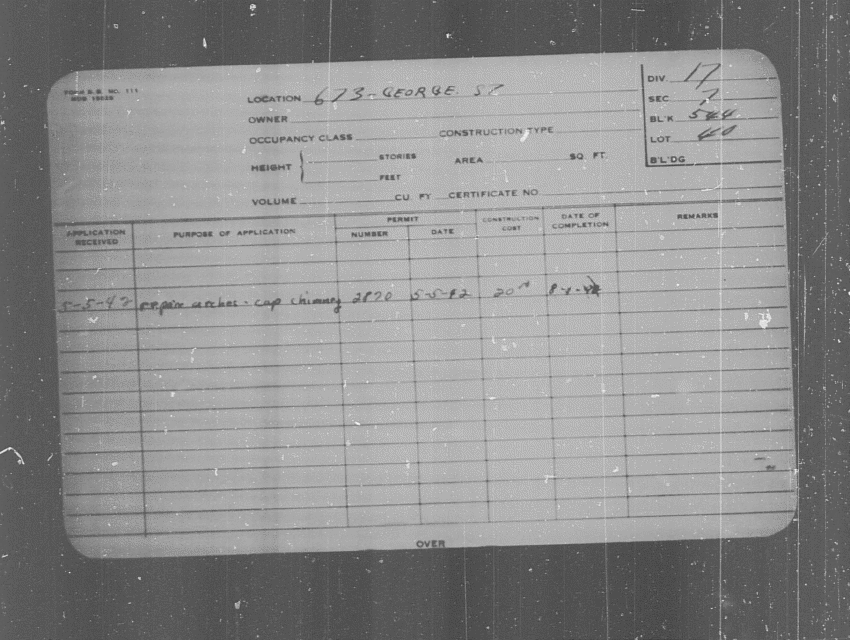 FORM B.B. NO. 111
LOCATION 673-GEORGE. ST
OWNER
OCCUPANCY CLASS CONSTRUCTION TYPE
HEIGHT STORIES AREA SQ. FT.
FEET
VOLUME CU. FT. CERTIFICATE NO
DIV. 17
SEC 7
BL'K 544
LOT 40
B'L'DG
APPLICATION RECEIVED PURPOSE OF APPLICATION PERMIT NUMBER DATE CONSTRUCTION COST DATE OF COMPLETION REMARKS
5-5-42 repair arches - cap chimney 2870 5-5-42 20
OVER